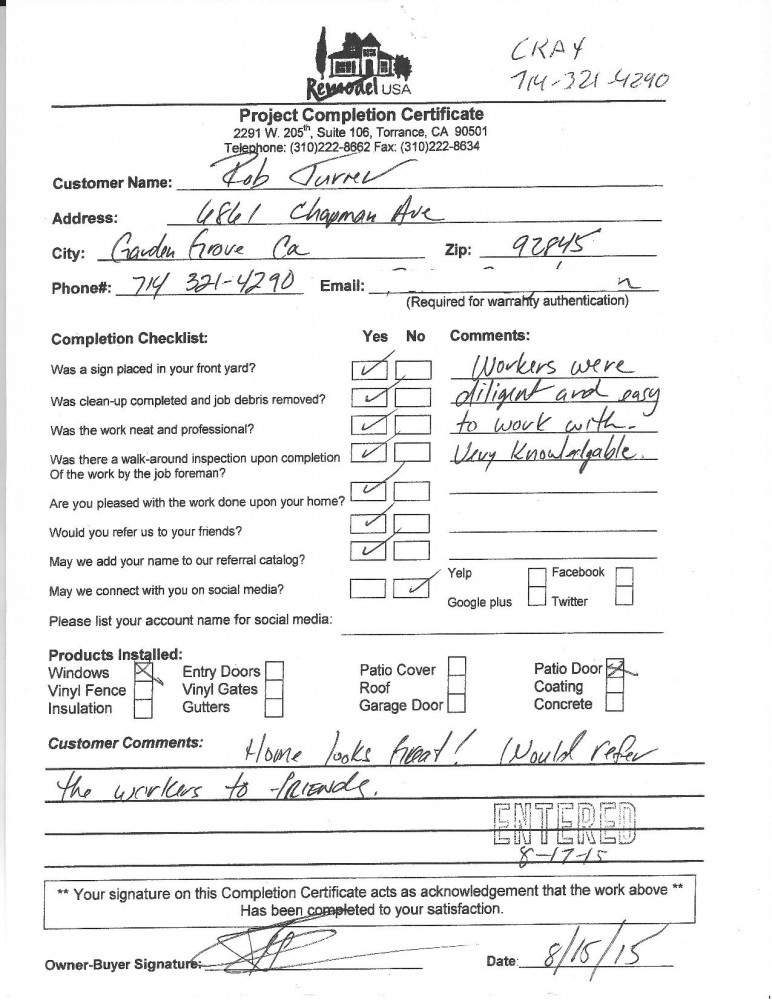 CRAY
714-321-4290
Remodel USA
Project Completion Certificate
2291 W. 205th, Suite 106, Torrance, CA 90501
Telephone: (310)222-8662 Fax: (310)222-8634
Customer Name: Rob Turner
Address: 6861 Chapman Ave
City: Garden Grove Ca Zip: 92845
Phone#: 714 321-4290 Email:
(Required for warranty authentication)
Completion Checklist: Yes No Comments:
Was a sign placed in your front yard? Workers were
Was clean-up completed and job debris removed? diligent and easy
Was the work neat and professional? to work with.
Was there a walk-around inspection upon completion Very Knowledgable.
Of the work by the job foreman?
Are you pleased with the work done upon your home?
Would you refer us to your friends?
May we add your name to our referral catalog?
May we connect with you on social media? Yelp Facebook
Google plus Twitter
Please list your account name for social media:
Products Installed:
Windows Entry Doors Patio Cover Patio Door
Vinyl Fence Vinyl Gates Roof Coating
Insulation Gutters Garage Door Concrete
Customer Comments: Home looks Great! Would refer
the workers to friends.
ENTERED
8-17-15
** Your signature on this Completion Certificate acts as acknowledgement that the work above **
Has been completed to your satisfaction.
Owner-Buyer Signature: Date: 8/15/15